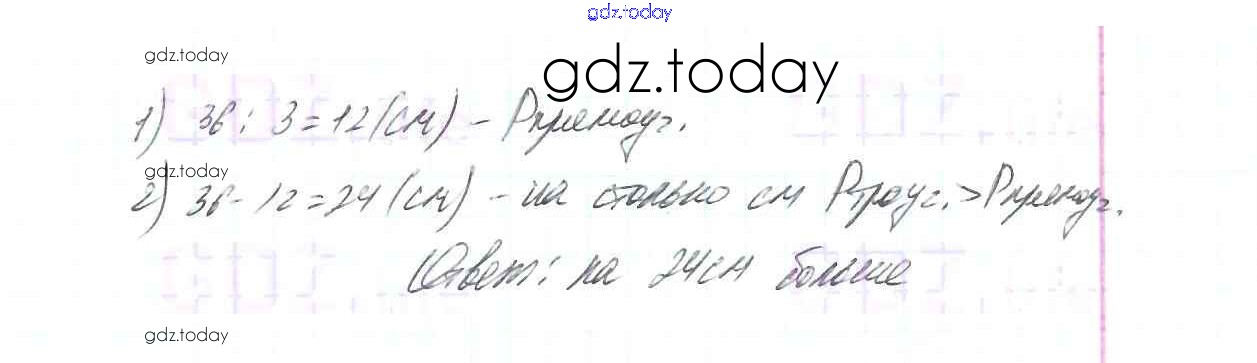 gdz.today
gdz.today
gdz.today
1) 36 : 3 = 12 (см) – Pпрямоуг.
gdz.today
2) 36 - 12 = 24 (см) – на столько см Pтреуг. > Pпрямоуг.
Ответ: на 24 см больше
gdz.today